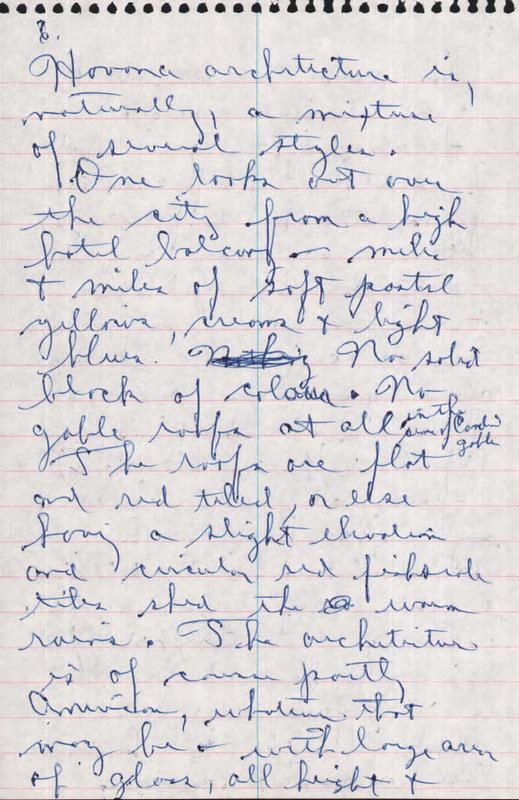 8.
Havana architecture is,
naturally, a mixture
of several styles.
One looks out over
the city from a high
hotel balcony – miles
& miles of soft pastel
yellows, creams & light
blues. No solid
block of colour. No
gable roofs at all in the
sense of
gable
The roofs are flat
and red tiled, or else
have a slight elevation
and circular red fishscale
tiles shed the warm
rains. The architecture
is of course partly
American, whatever that
may be – with large areas
of glass, all height &